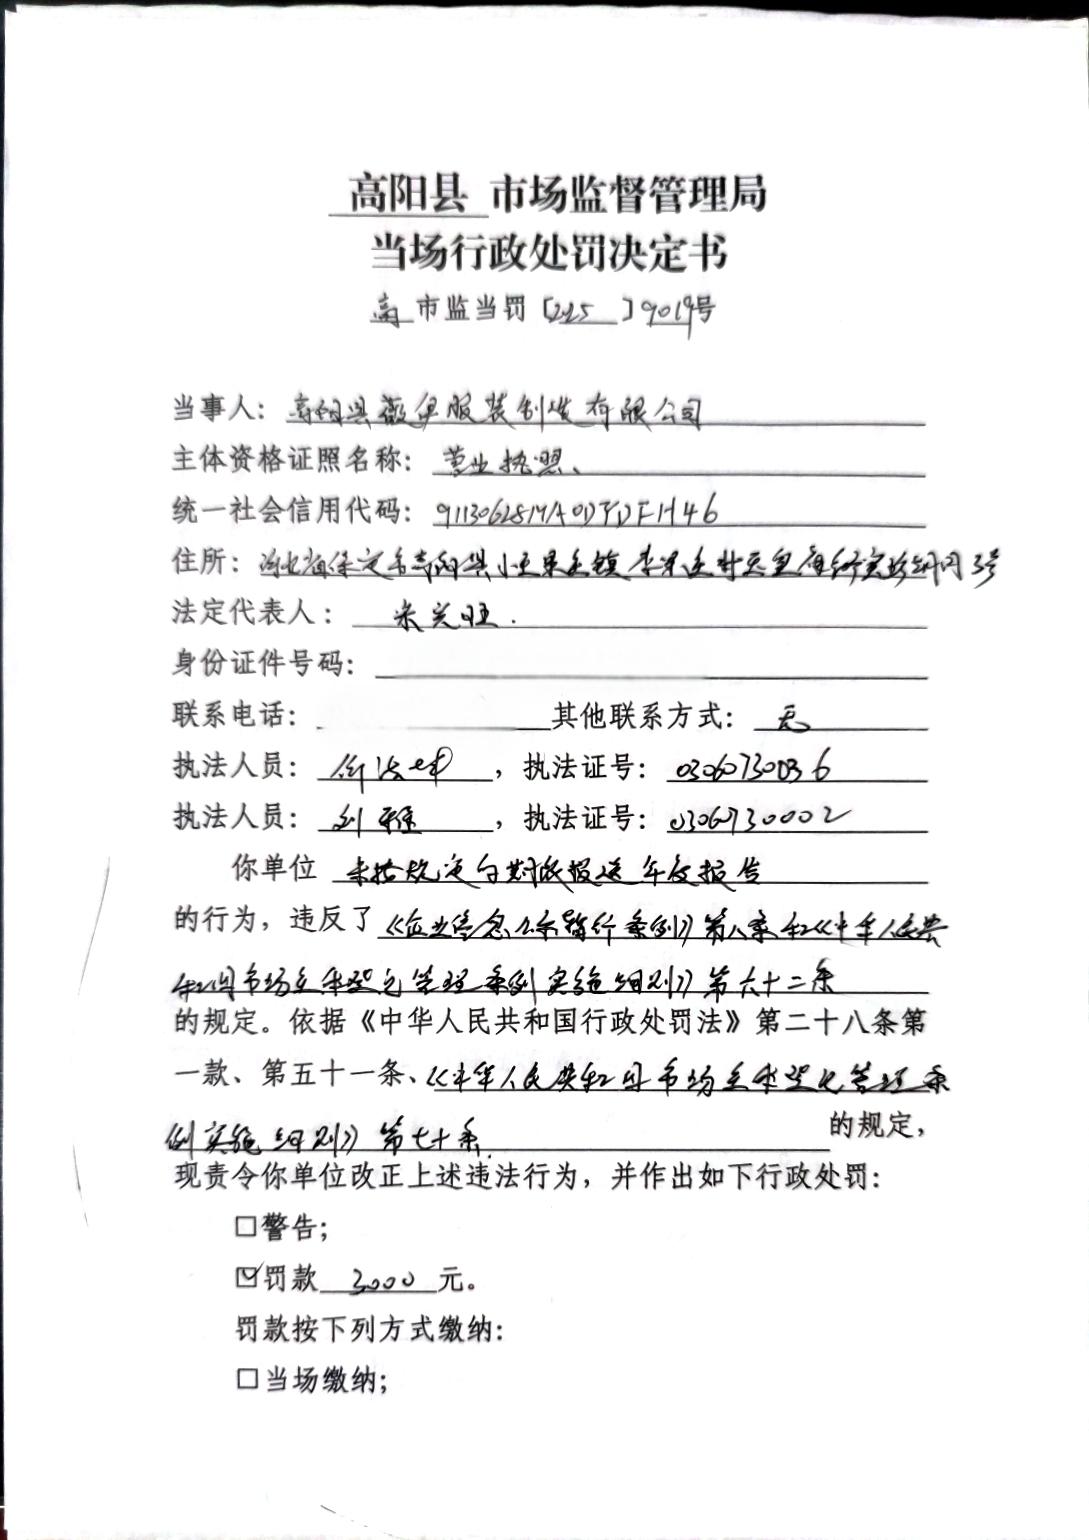 高阳县 市场监督管理局
当场行政处罚决定书
高 市监当罚〔2025〕9019号
当事人：高阳县薇伊服装制造有限公司
主体资格证照名称：营业执照、
统一社会信用代码：91130628MA0DTDFH46
住所：河北省保定市高阳县小王果庄镇李果庄村 3号
法定代表人：宋兴旺.
身份证件号码：
联系电话： 其他联系方式：无
执法人员： ，执法证号：03060730036
执法人员：刘雅 ，执法证号：03060730002
你单位 未按规定的期限报送年度报告
的行为，违反了《企业信息公示暂行条例》第八条和《中华人民共
和国市场主体登记管理条例实施细则》第六十二条
的规定。依据《中华人民共和国行政处罚法》第二十八条第
一款、第五十一条、《中华人民共和国市场主体登记管理条
例实施细则》第七十条 的规定，
现责令你单位改正上述违法行为，并作出如下行政处罚：
□警告；
☑罚款 3000 元。
罚款按下列方式缴纳：
□当场缴纳；